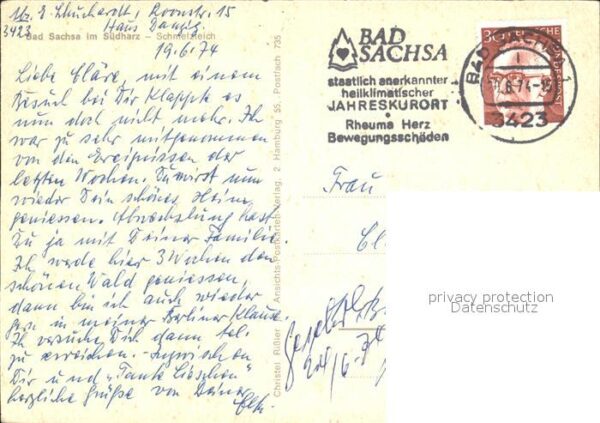 E. Schuchardt, Roonstr. 15
3423 Haus Danig
Bad Sachsa im Südharz – Schmelzteich
19.6.74
Liebe Cläre, mit einem
Besuch bei Dir klappte es
nun doch nicht mehr. Ich
war zu sehr mitgenommen
von den Ereignissen der
letzten Wochen. Du wirst nun
wieder Dein schönes Heim
geniessen. Abwechslung hast
Du ja mit Deiner Familie.
Ich werde hier 3 Wochen den
schönen Wald geniessen,
dann bin ich auch wieder
in meiner Berliner Klause.
Ich versuche Dich dann tel.
zu erreichen. Inzwischen
Dir und "Tante Lieschen"
herzliche Grüße von Deiner
Elk.
Christel Rüßler Ansichts-Postkarten-Verlag, 2 Hamburg 55, Postfach 735
BAD
SACHSA
staatlich anerkannter
heilklimatischer
JAHRESKURORT
Rheuma Herz
Bewegungsschäden
BAD SACHSA 1
.6.74-15
3423
30
DEUTSCHE
BUNDESPOST
Frau
Cl
privacy protection
Datenschutz